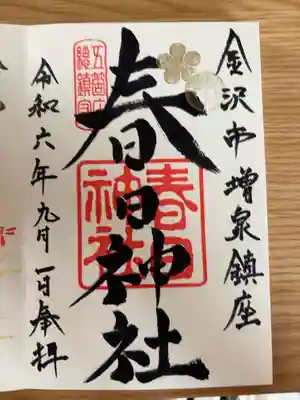 金沢市増泉鎮座
五箇庄
総鎮守
春日神社
春日
神社
令和六年九月一日奉拝